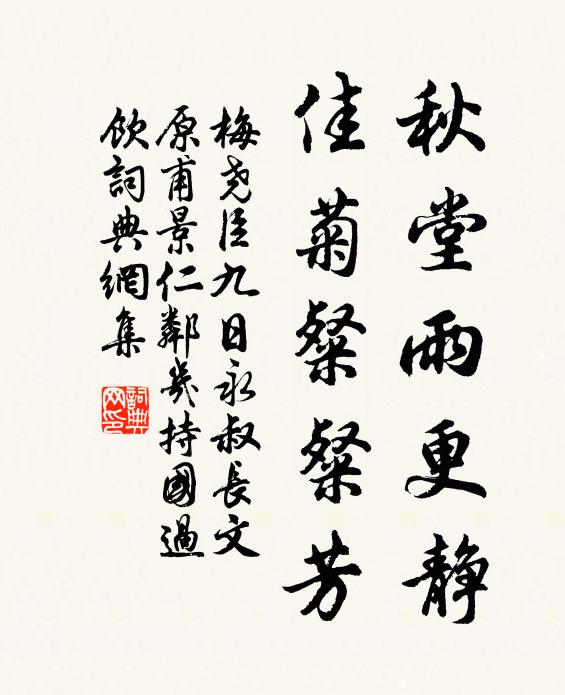 秋堂雨更静
佳菊粲粲芳
梅尧臣九日永叔長文
原甫景仁鄰幾持國過
飲詞典網集
詞典
网印